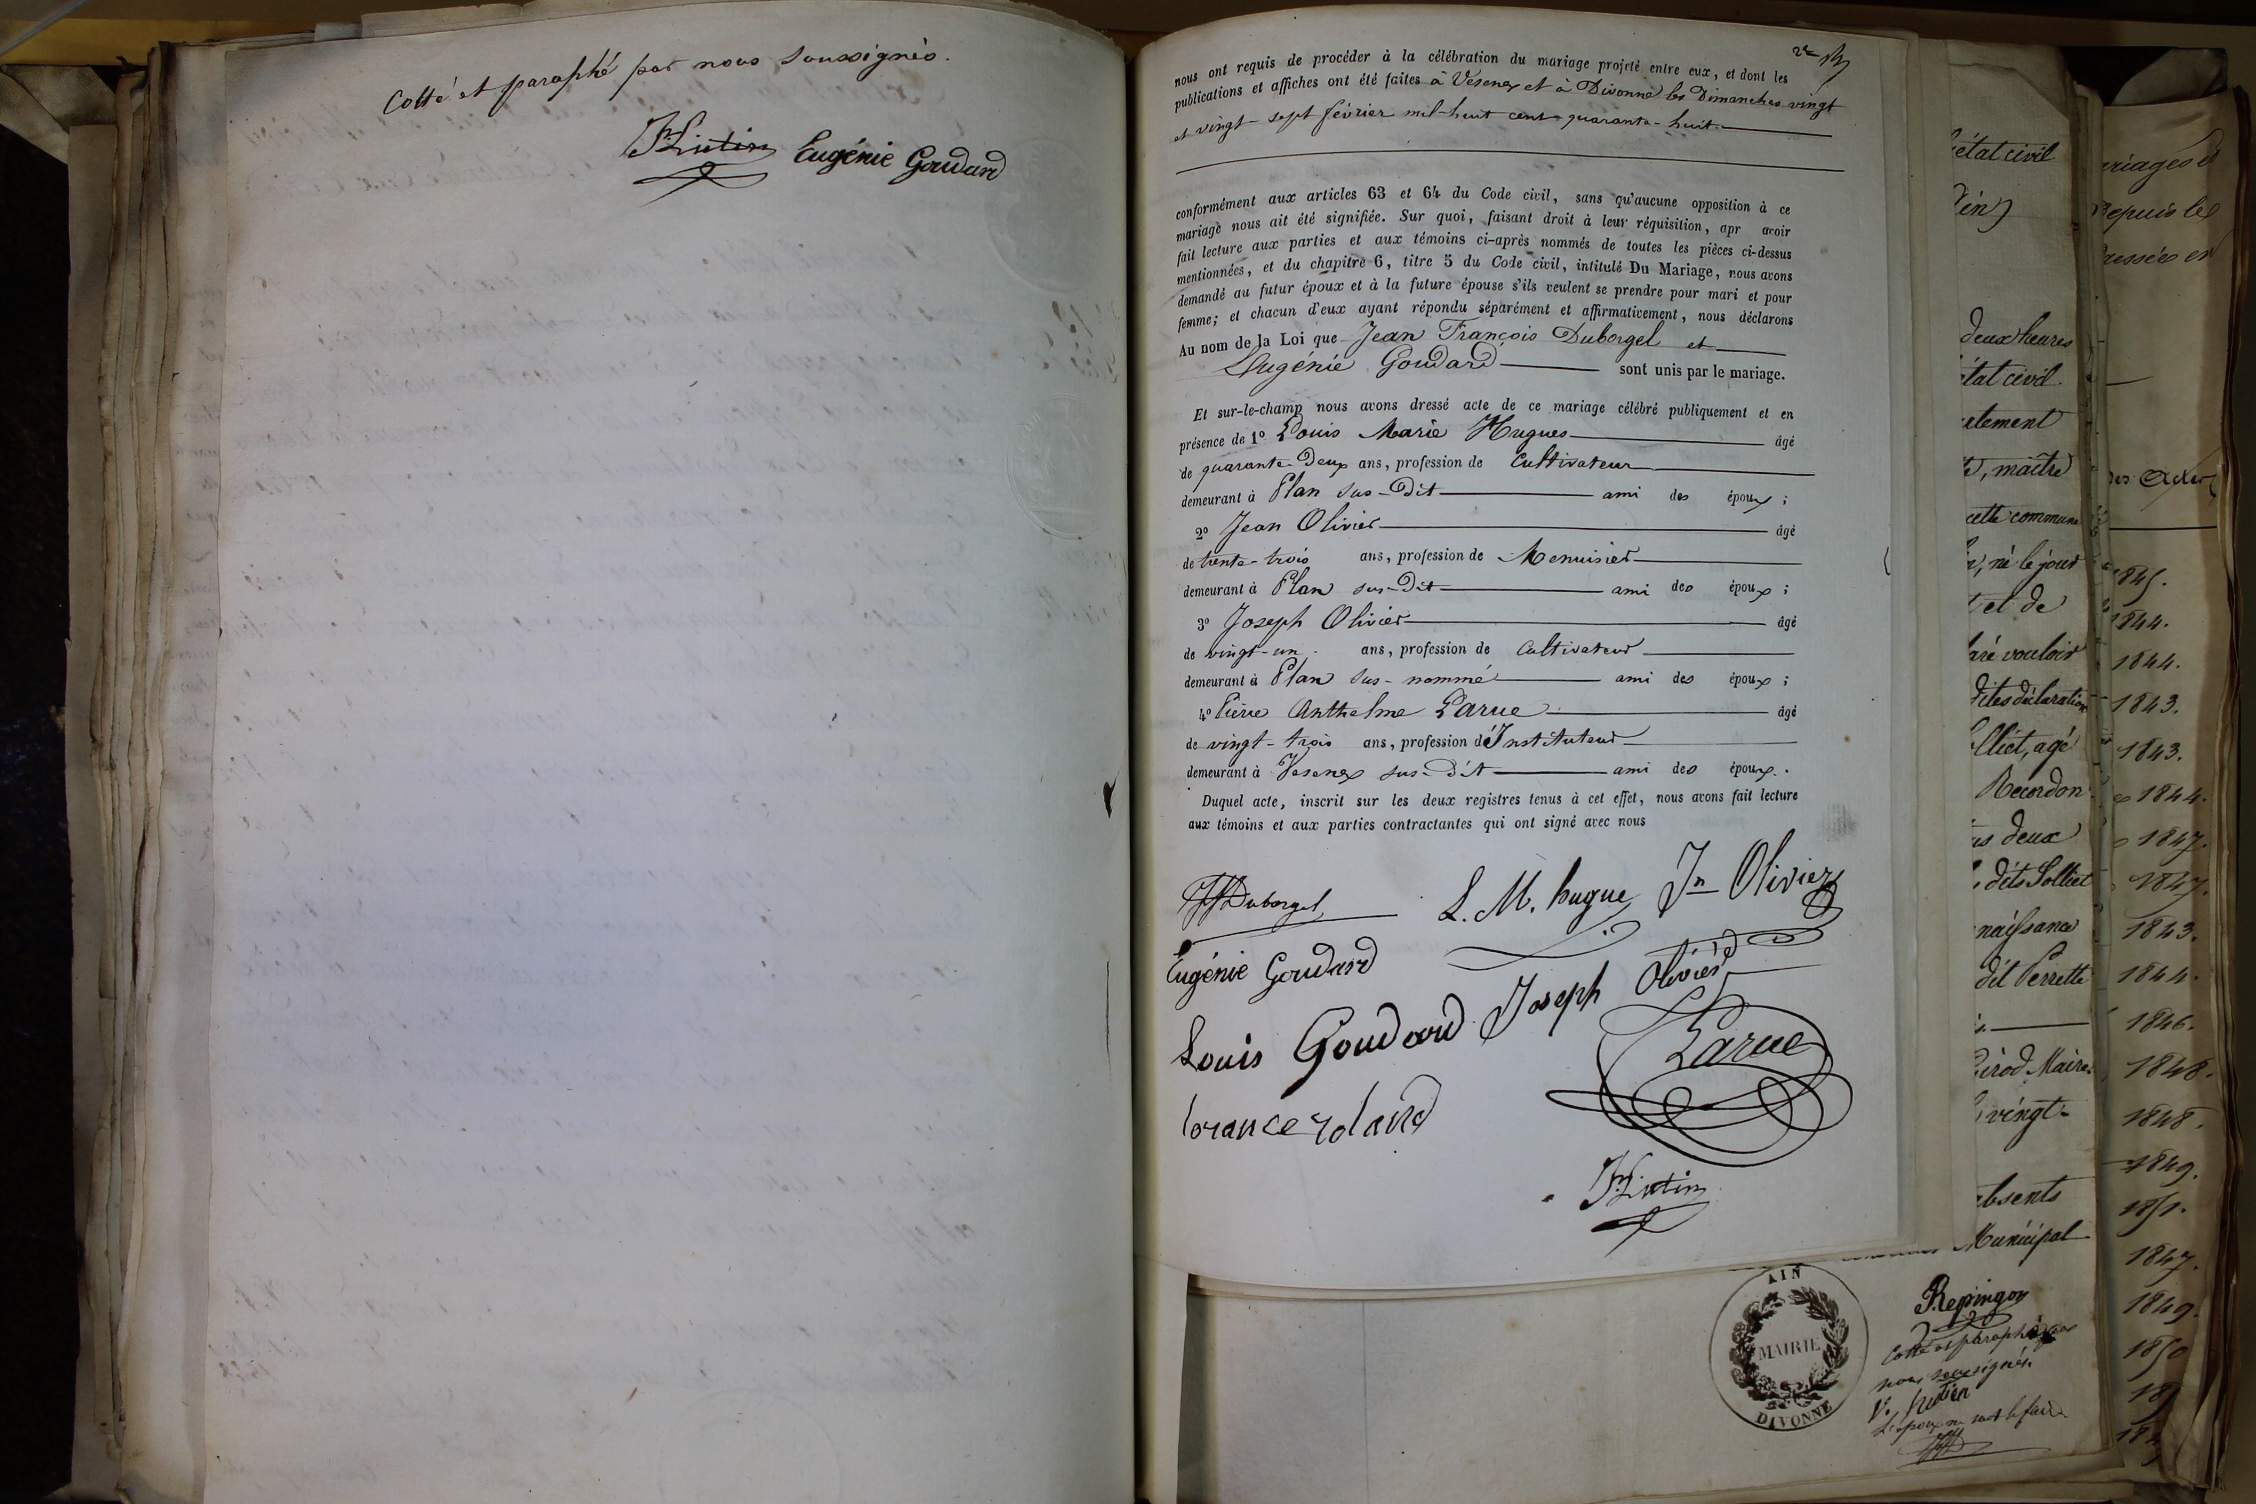 Cotté et paraphé par nous soussignés.
Eugénie Goudard
nous ont requis de procéder à la célébration du mariage projeté entre eux, et dont les
publications et affiches ont été faites à Vésenex et à Divonne les Dimanches vingt
et vingt-sept février mil-huit cent-quarante-huit.
conformément aux articles 63 et 64 du Code civil, sans qu'aucune opposition à ce
mariage nous ait été signifiée. Sur quoi, faisant droit à leur réquisition, apr avoir
fait lecture aux parties et aux témoins ci-après nommés de toutes les pièces ci-dessus
mentionnées, et du chapitre 6, titre 5 du Code civil, intitulé Du Mariage, nous avons
demandé au futur époux et à la future épouse s'ils veulent se prendre pour mari et pour
femme; et chacun d'eux ayant répondu séparément et affirmativement, nous déclarons
Au nom de la Loi que Jean François Duborgel et
Eugénie Goudard sont unis par le mariage.
Et sur-le-champ nous avons dressé acte de ce mariage célébré publiquement et en
présence de 1º Louis Marie Hugues âgé
de quarante-Deux ans, profession de Cultivateur
demeurant à Plan sus-Dit ami des époux;
2º Jean Olivier âgé
de trente-trois ans, profession de Menuisier
demeurant à Plan sus-Dit ami des époux;
3º Joseph Olivier âgé
de vingt-un ans, profession de Cultivateur
demeurant à Plan sus-nommé ami des époux;
4º Pierre Anthelme Larue âgé
de vingt-trois ans, profession d'Instituteur
demeurant à Vesenex sus-dit ami des époux.
Duquel acte, inscrit sur les deux registres tenus à cet effet, nous avons fait lecture
aux témoins et aux parties contractantes qui ont signé avec nous
Duborgel L. M. hugue Jn Olivier
Eugénie Goudard
Louis Goudard Joseph Olivier
Larue
lorance roland
état civil
deux heures
état civil.
maître
cette commune
né le jour
et de
vouloir
dites déclaration
agé
Recordon
deux
dits Solliet
dit Perrette
Maire
vingt-
absents
Municipal
AIN
MAIRIE
DIVONNE
Repingon
Cotté et paraphé par
nous soussignés
depuis les
des Actes
1845.
1844.
1844.
1843.
1843.
1844.
1847.
1847.
1843.
1844.
1846.
1848.
1848.
1849.
1851.
1847.
1849.
1850